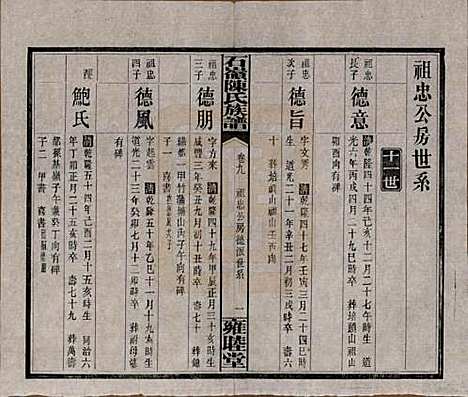 祖忠公房世系
十二世
祖忠
長子
德意
清乾隆四十四年己亥十二月二十七午時生
道光六年丙戌四月二十九戌時卒
葬培頭山祖山
卯酉向有碑
祖忠
次子
德旨
字文
清乾隆四十七年壬寅三月二十四巳時
生
道光二十一年辛丑二月初三戌時卒
壽六
十
葬培頭山祖山壬丙向
石嶺陳氏族譜
卷九
祖忠公房德派世系
一
雍睦堂
祖忠
三子
德朋
字方來
清乾隆四十九年甲辰正月三十亥時生
咸豐三年癸丑九月初十丑時卒
壽七十
葬鐘
祖忠
四子
德鳳
字起雲
清乾隆五十年乙巳十一月十九戌時生
道光二十三年癸卯七月十二戌時卒
葬祔母墳
有碑
配
鮑氏
清乾隆五十四年己酉二月十五亥時生
同治六
年丁卯十二月二十五亥時卒
壽七十九
葬萬壽
子午兼癸丁向有碑
子二
甲書
喜書